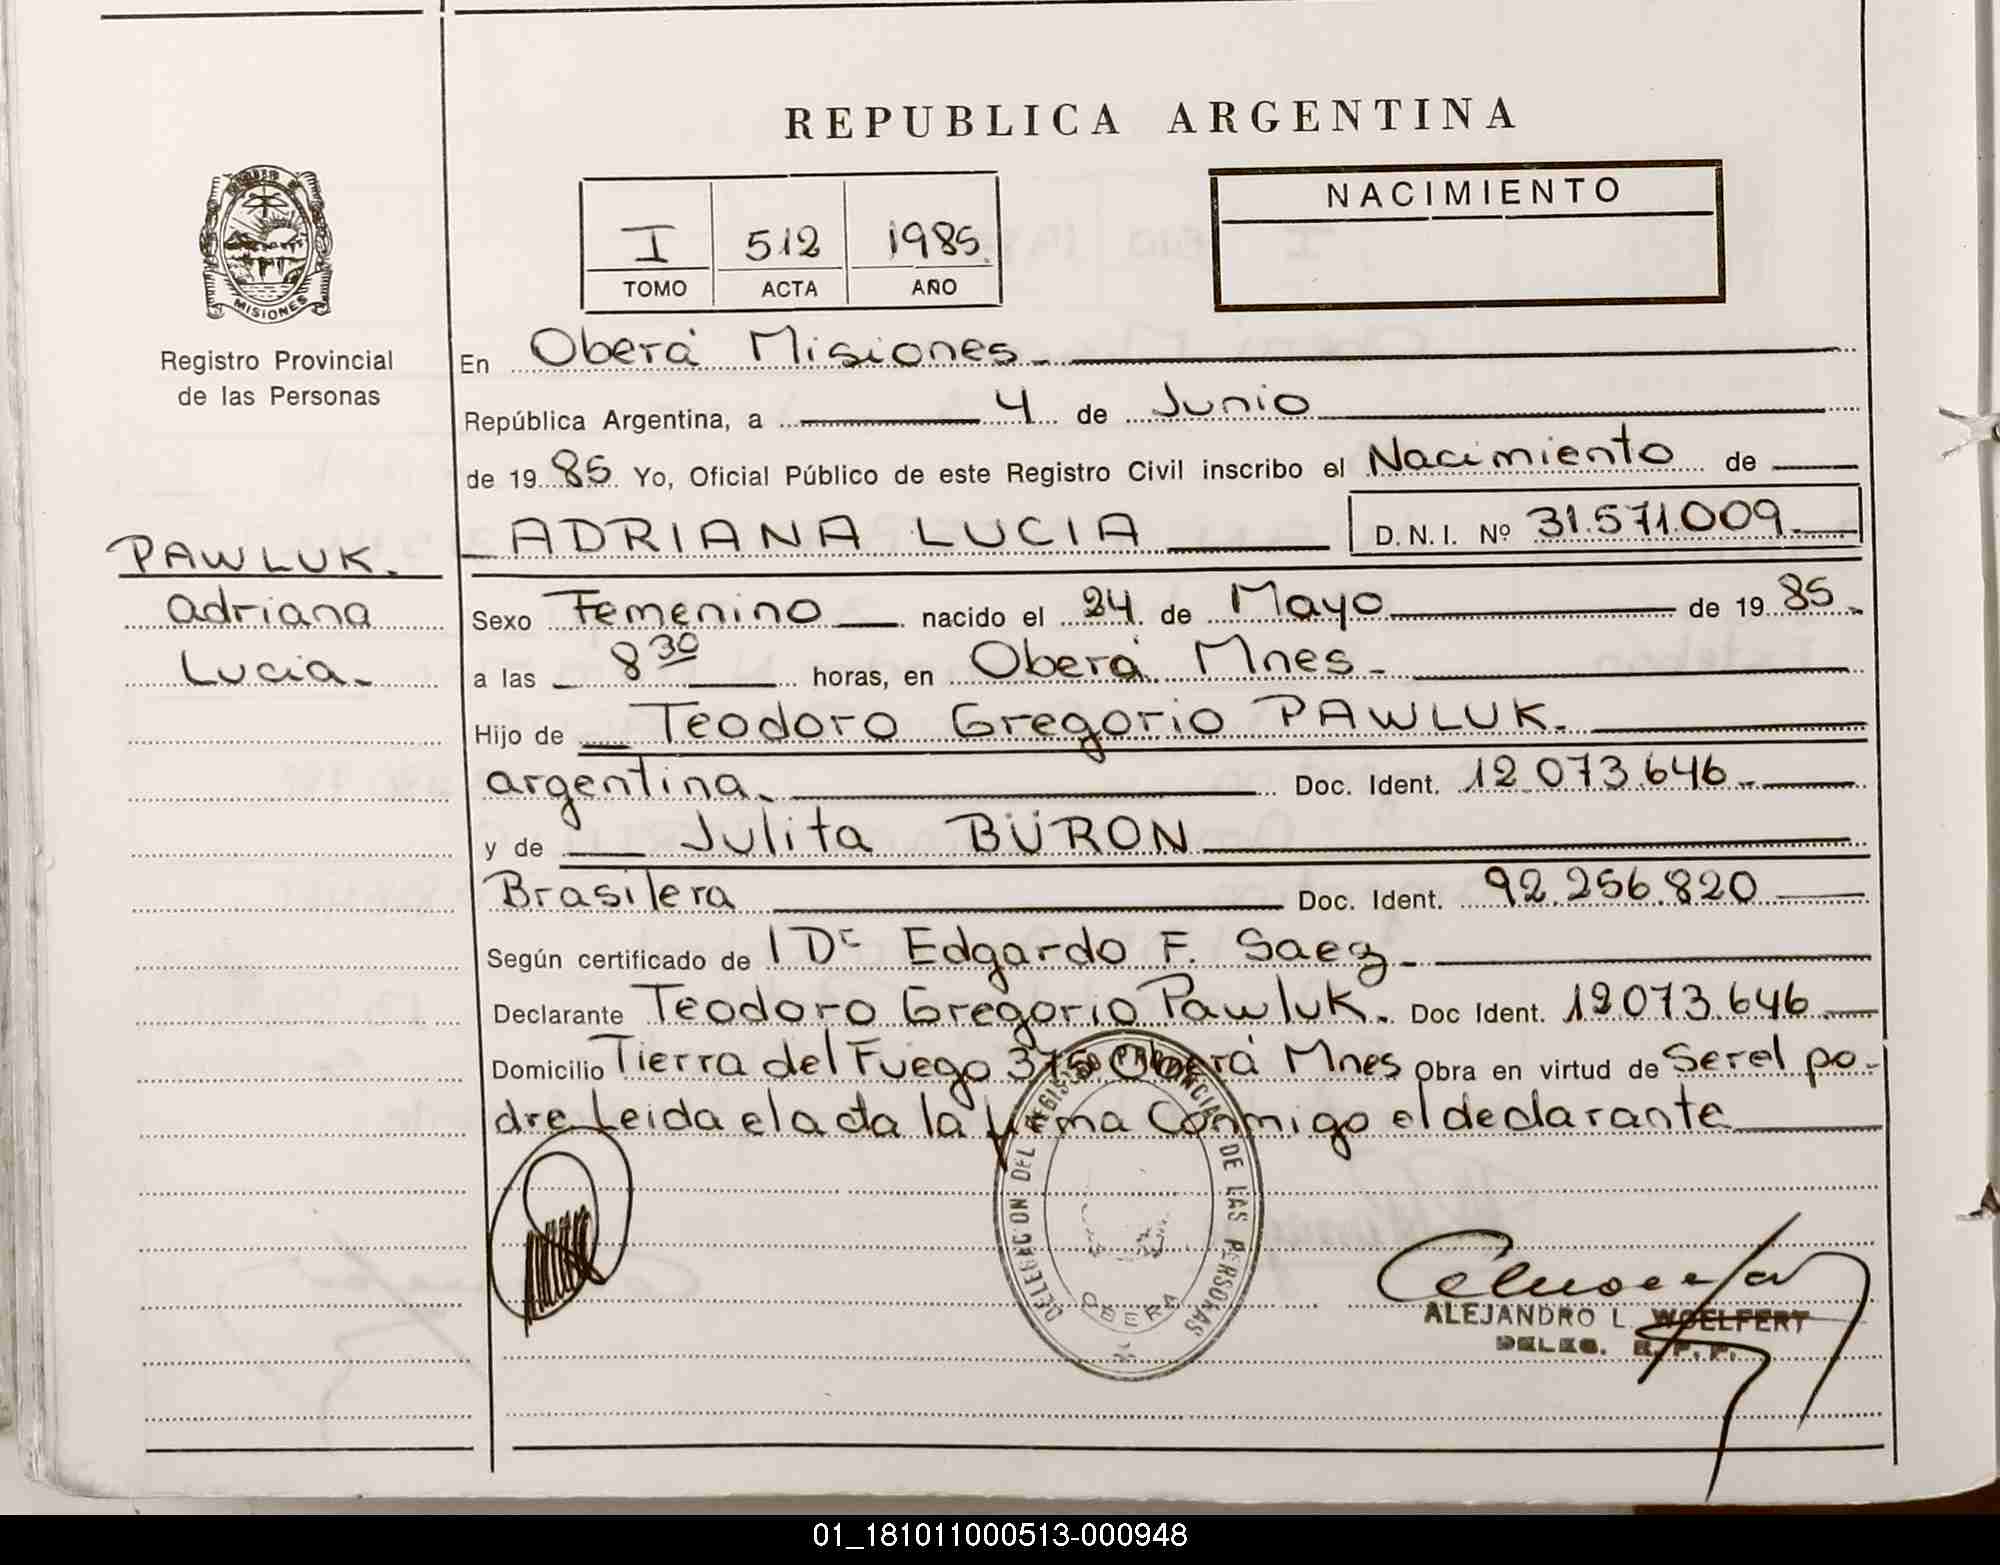 REPUBLICA ARGENTINA
MISIONES
Registro Provincial
de las Personas
PAWLUK.
Adriana
Lucia.
I 512 1985
TOMO ACTA AÑO
NACIMIENTO
En Oberá Misiones
República Argentina, a 4 de Junio
de 1985 Yo, Oficial Público de este Registro Civil inscribo el Nacimiento de
ADRIANA LUCIA D.N.I. Nº 31.571.009
Sexo Femenino nacido el 24 de Mayo de 1985
a las 8 30 horas, en Oberá Mnes
Hijo de Teodoro Gregorio PAWLUK.
argentina. Doc. Ident. 12.073.646
y de Julita BÜRON
Brasilera Doc. Ident. 92.256.820
Según certificado de Dr Edgardo F. Saez
Declarante Teodoro Gregorio Pawluk. Doc Ident. 12.073.646
Domicilio Tierra del Fuego 375 Oberá Mnes Obra en virtud de Ser el pa-
dre Leida el acta la firma Conmigo el declarante
DELEGACION DEL REGISTRO PROVINCIAL DE LAS PERSONAS
OBERA
ALEJANDRO L. WOELFERT
DELEG. R. P. P.
01_181011000513-000948